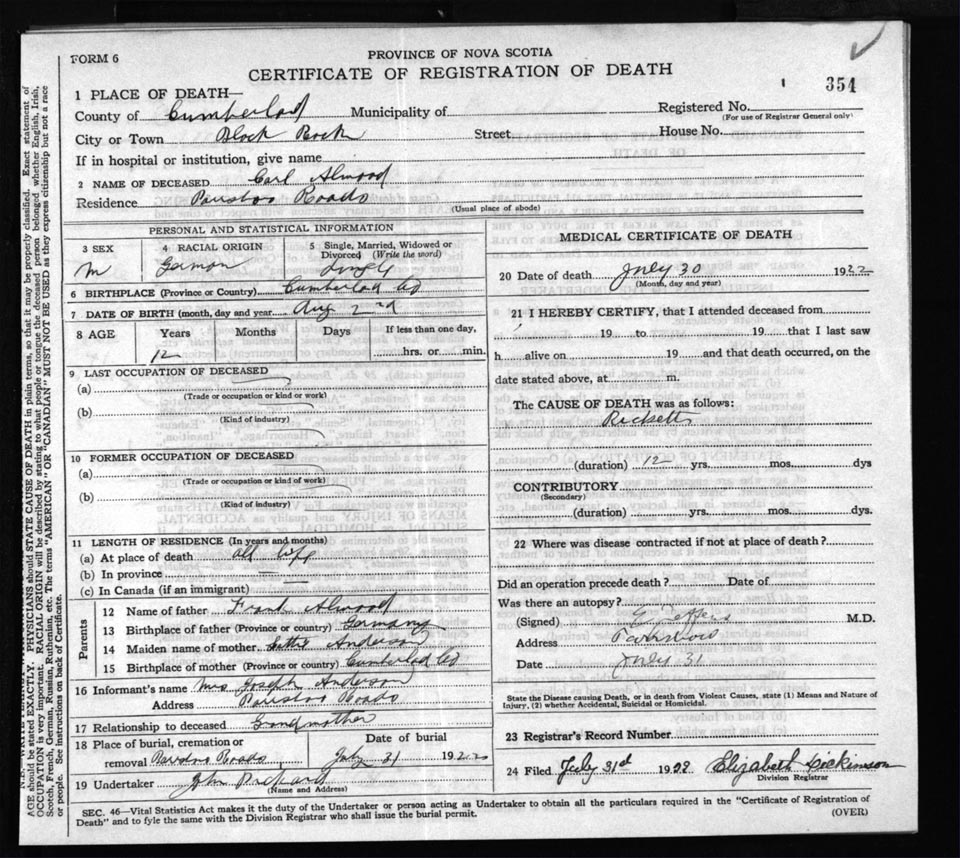 FORM 6
PROVINCE OF NOVA SCOTIA
CERTIFICATE OF REGISTRATION OF DEATH
354
1 PLACE OF DEATH—
County of Cumberlad Municipality of Registered No.
(For use of Registrar General only)
City or Town Black Rock Street House No.
If in hospital or institution, give name
2 NAME OF DECEASED Carl Almood
Residence Roads
(Usual place of abode)
PERSONAL AND STATISTICAL INFORMATION
3 SEX 4 RACIAL ORIGIN 5 Single, Married, Widowed or Divorced (Write the word)
M German Single
6 BIRTHPLACE (Province or Country) Cumberlad Co
7 DATE OF BIRTH (month, day and year) Aug 2nd
8 AGE Years Months Days If less than one day,
12 hrs. or min.
9 LAST OCCUPATION OF DECEASED
(a)
(Trade or occupation or kind or work)
(b)
(Kind of industry)
10 FORMER OCCUPATION OF DECEASED
(a)
(Trade or occupation or kind of work)
(b)
(Kind of industry)
11 LENGTH OF RESIDENCE (In years and months)
(a) At place of death all life
(b) In province
(c) In Canada (if an immigrant)
Parents
12 Name of father Frank Almood
13 Birthplace of father (Province or country) Germany
14 Maiden name of mother Anderson
15 Birthplace of mother (Province or country) Cumberlad Co
16 Informant's name Mrs Joseph Anderson
Address Roads
17 Relationship to deceased Grandmother
18 Place of burial, cremation or Date of burial
removal Roads July 31 1922
19 Undertaker John
(Name and Address)
MEDICAL CERTIFICATE OF DEATH
20 Date of death July 30 1922
(Month, day and year)
21 I HEREBY CERTIFY, that I attended deceased from
19 to 19 that I last saw
h alive on 19 and that death occurred, on the
date stated above, at m.
The CAUSE OF DEATH was as follows:
Ricketts
(duration) 12 yrs. mos. dys
CONTRIBUTORY
(Secondary)
(duration) yrs. mos. dys.
22 Where was disease contracted if not at place of death?
Did an operation precede death? Date of
Was there an autopsy?
(Signed) M.D.
Address
Date July 31
State the Disease causing Death, or in death from Violent Causes, state (1) Means and Nature of
Injury, (2) whether Accidental, Suicidal or Homicidal.
23 Registrar's Record Number
24 Filed July 31d 1922 Elizabeth Dickinson
Division Registrar
SEC. 46—Vital Statistics Act makes it the duty of the Undertaker or person acting as Undertaker to obtain all the particulars required in the "Certificate of Registration of
Death" and to fyle the same with the Division Registrar who shall issue the burial permit.
(OVER)
AGE should be stated EXACTLY. PHYSICIANS should STATE CAUSE OF DEATH in plain terms, so that it may be properly classified. Exact statement of
OCCUPATION is very important. RACIAL ORIGIN will be described by stating to what people or tongue the deceased person belonged whether English, Irish,
Scotch, French, German, Russian, Ruthenian, etc. The terms "AMERICAN" OR "CANADIAN" MUST NOT BE USED as they express citizenship but not a race
or people. See instructions on back of Certificate.